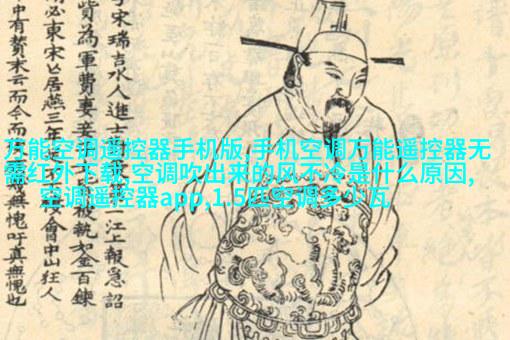 宋瑞吉水人進士第一江上報急詔
貲為軍費妻妾被執如金百鍊
必東宋亡居燕三年會中山狂人
中有贊末云而今而無愧吁真無愧也
万能空调遥控器手机版,手机空调万能遥控器无
需红外下载,空调吹出来的风不冷是什么原因,
空调遥控器app,1.5匹空调多少瓦